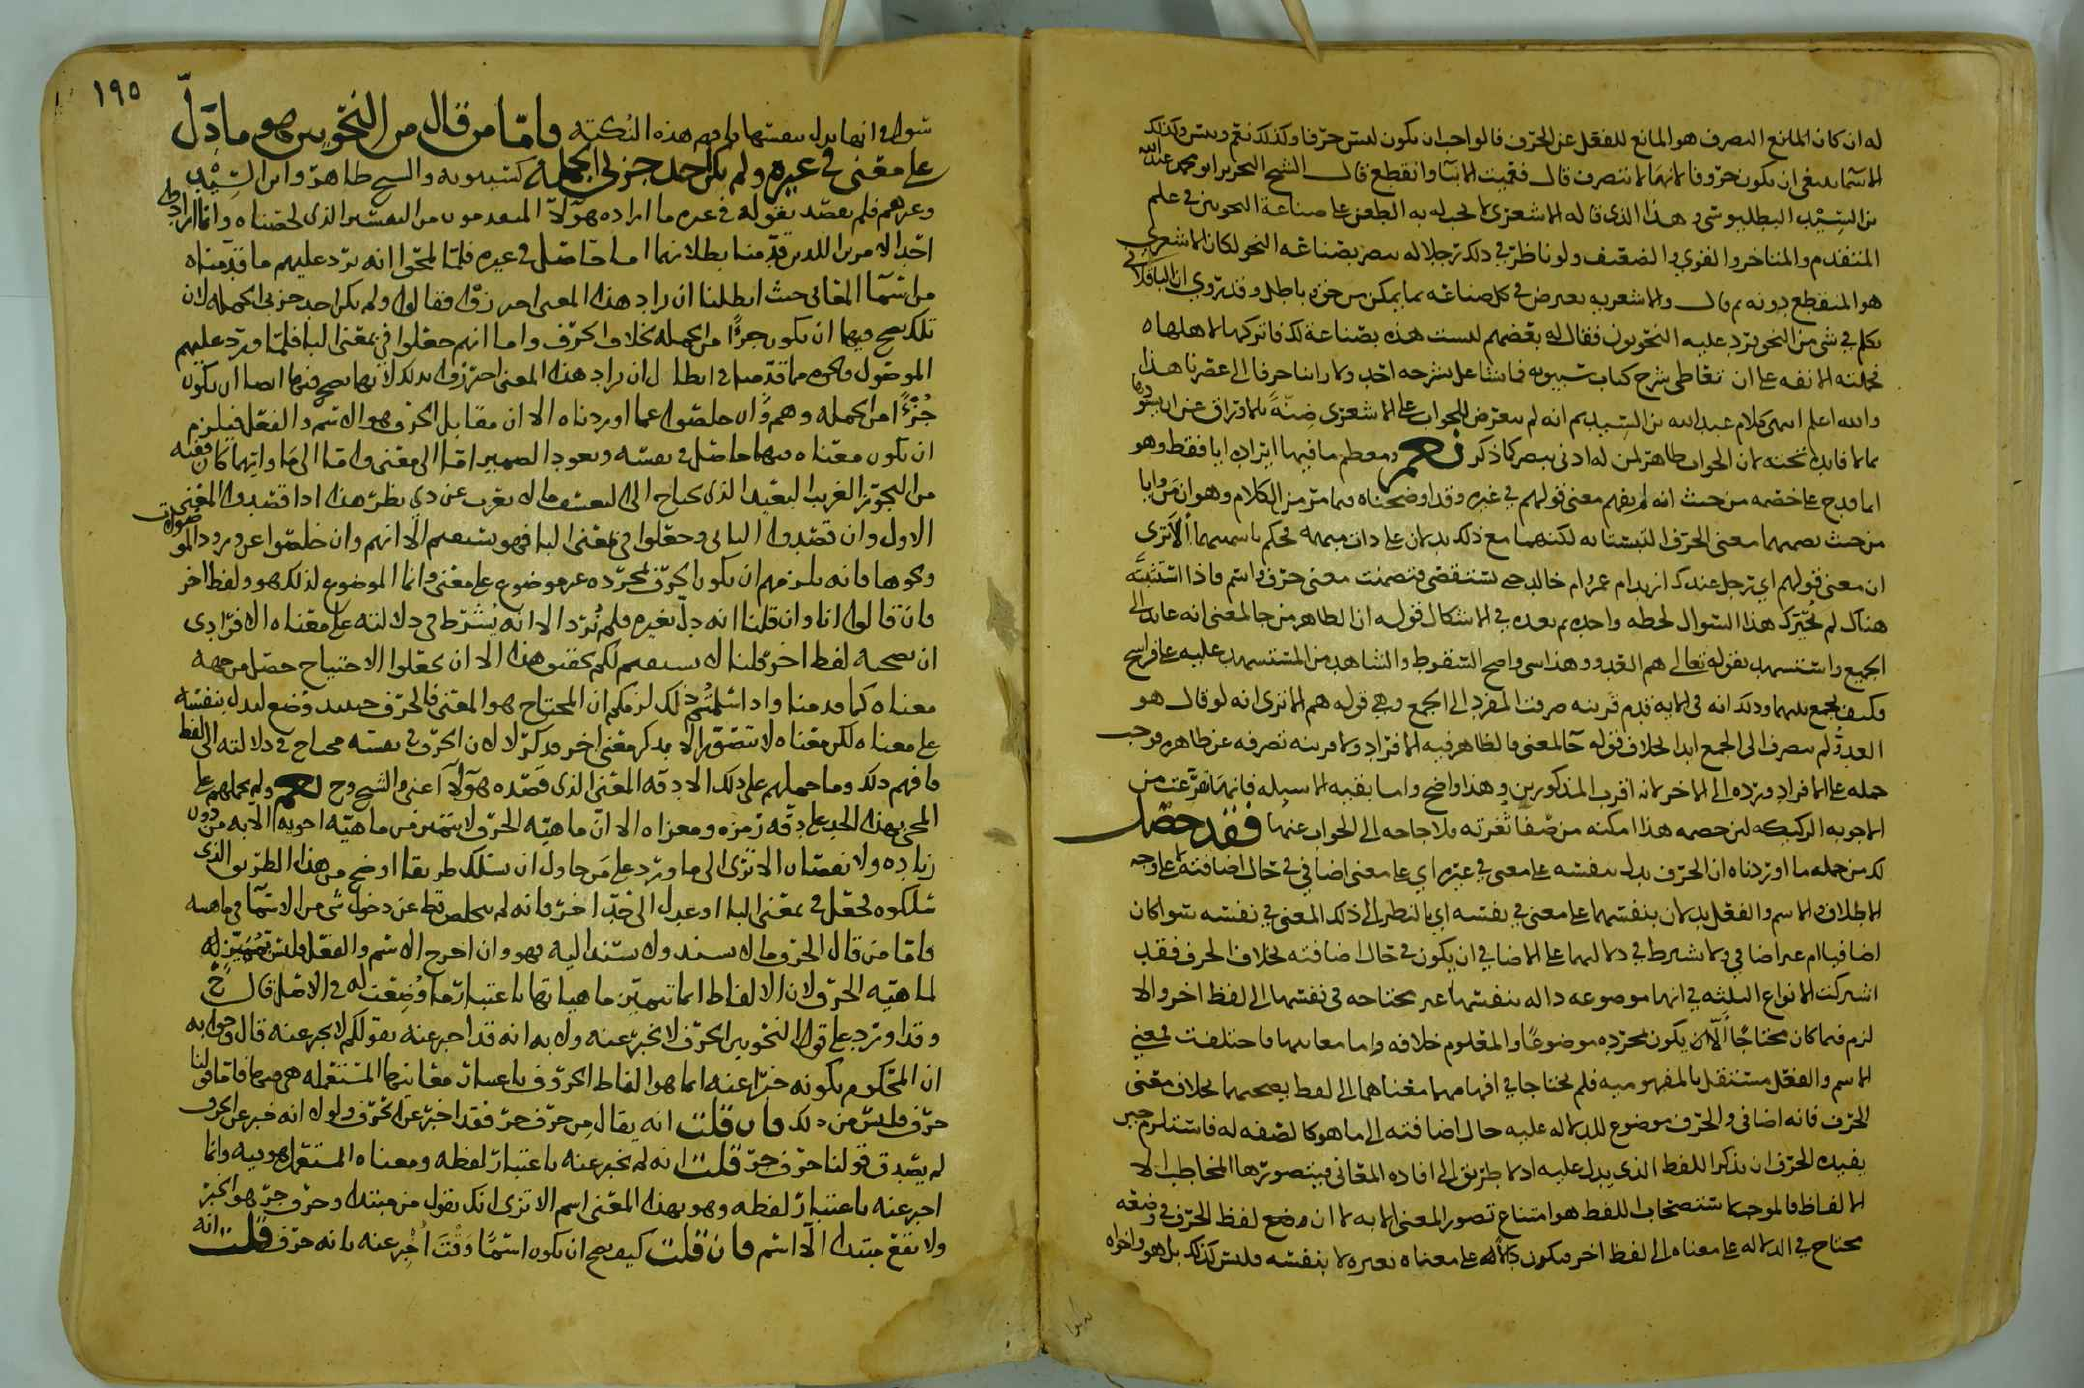 له ان كان المانع التصرف هو المانع للفعل عن الحرف فالواجب ان يكون ليس حرفا وكذلك نعم وبئس وكذلك
الاسما ينبغي ان يكون حروفا لانها لا تتصرف قال فبهت الاستاذ وانقطع قال الشيخ النحرير ابو محمد عبدالله
بن السيد البطليوسي وهذا الذي قاله الاشعري لا يجب له به الطعن على صناعة النحويين في علم
المتقدم والمتاخر والقوي والضعيف ولو ناظر في ذلك رجلا له بصر بصناعة النحو لكان الاشعري
هو المنقطع دونه ثم قال والاشعرية تعترض في كل صناعة بما يمكن من حق وباطل وقد روي ان الباقلاني
تكلم في شي من النحو يرد عليه النحويون فقال له بعضهم ليست هذه بصناعة لك فاتركها لاهلها
فحملته الانفة على ان تعاطى شرح كتاب سيبويه فما شاع شرحه احد ولا راينا حرفا الى عصرنا هذا
والله اعلم انتهى كلام عبد الله بن السيد ثم انه لم يتعرض للجواب على الاشعري
مما لا فايدة تحته لان الجواب ظاهر لمن له ادنى بصر كما ذكر نعم ومعظم ما فيها ايراده ايا فقط وهو
انما قدح على خصمه من حيث انه لم يفهم معنى قولهم في غيره وقد اوضحناه فيما مر من الكلام وهو ان من وايا
من حيث تضمنهما معنى الحرف التبستا به لكنهما مع ذلك يدلان على ذات مبهمة فحكم باسميتهما الا ترى
ان معنى قولهم اي رجل عندك ازيد ام عمرو ام خالد حتى تستقصي فتضمنت معنى حرف واسم فاذا استثبته
هناك لم يحترك هذا السوال لحظة واحدة ثم بعده في الاشكال قوله ان الظاهر من جا لمعنى انه عايد الى
الجميع واستشهد بقوله تعالى هم العدو وهذا شي واضح السقوط والشاهد من المستشهد عليه على فراسخ
فكيف يجمع بينهما وذلك انه في الاية تقدم قرينة صرفت المفرد الى الجمع وهي قوله هم الا ترى انه لو قال هو
العدو لم ينصرف الى الجمع ابدا بخلاف قوله جا لمعنى فالظاهر فيه الافراد ولا قرينة تصرفه عن ظاهره فوجب
حمله على الافراد ورده الى الاخر لانه اقرب المذكورين وهذا واضح واما بقية الاسيلة فانها تفرعت من
الاجوبة الركيكة لمن خصمه هذا امكنه من صفا ثغرته فلا حاجة الى الجواب عنها فقد حصل
لك من جملة ما اوردناه ان الحرف يدل بنفسه على معنى في غيره اي على معنى اضافي في حال اضافته لا على وجه
الاطلاق والاسم والفعل يدلان بنفسهما على معنى في نفسه اي بالنظر الى ذلك المعنى في نفسه سوا كان
اضافيا ام غير اضافي ولا يشترط في دلالتهما على الاضافي ان يكون في حال اضافته بخلاف الحرف فقد
اشتركت الانواع الثلثة في انها موضوعة دالة بنفسها غير محتاجة في نفسها الى لفظ اخر والا
لزم فيما كان محتاجا الا ان يكون بمجرده موضوعا والمعلوم خلافه واما معانيها فاختلفت فمعنى
الاسم والفعل مستقل بالمفهومية فلم يحتاجا في افهامهما معناهما الى لفظ يصحبهما بخلاف معنى
الحرف فانه اضافي والحرف موضوع للدلالة عليه حال اضافته الى ما هو كالصفة له فاستلزم حين
يفيده الحرف ان يذكر اللفظ الذي يدل عليه اذ لا طريق الى افادة المعاني فيتصورها المخاطب الا
الالفاظ فالموجب لاستصحاب اللفظ هو امتناع تصور المعنى الا به لا ان وضع لفظ الحرف في وضعه
محتاج في الدلالة على معناه الى لفظ اخر فيكون دلالة على معناه بغيره لا بنفسه فليس كذلك بل هو واخواه
١٩٥
سوا في انها يدل بنفسها فلم يفهم هذه النكتة واما من قال من النحويين هو ما دل
على معنى في غيره ولم يكن احد جزئي الجملة كسيبويه والشيخ طاهر وابن السيد
وغيرهم فلم يقصد بقوله في غيره ما اراده هؤلا المتقدمون من التفسير الذي لخصناه وانما اراد به
احد الامرين اللذين قدمنا بطلانهما اما حاصل في غيره فلما لمحوا انه يرد عليهم ما قدمناه
من اسما المعاني حيث ابطلنا ان يراد هذا المعنى احترزوا فقالوا ولم يكن احد جزئي الجملة لان
تلك يصح فيها ان يكون جزءا من الجملة بخلاف الحرف واما انهم جعلوا في بمعنى البا فلما ورد عليهم
الموصول ونحوه مما قدمنا في ابطال ان يراد هذا المعنى احترزوا بذلك لانها يصح فيها ايضا ان يكون
جزءا من الجملة وهم وان خلصوا عما اوردناه الا ان مقابل الحرف هو الاسم والفعل فيلزم
ان يكون معناه فيهما حاصل في نفسه ويعود الضمير اما الى معنى واما الى ما وايهما كان ففيه
من التجوز الغريب البعيد الذي يحتاج الى التعسف ما لا يغرب عن ذي نظر هذا اذا قصدوا المعنى
الاول وان قصدوا الثاني وجعلوا في بمعنى البا فهو يستقيم الا انهم وان خلصوا عن ورود الموصولات
ونحوها فانه يلزمهم ان يكون الحرف بمجرده غير موضوع على معنى وانما الموضوع لذلك هو ولفظ اخر
فان قالوا انا وان قلنا انه دل بغيره فلم نرد الا انه يشترط في دلالته على معناه الافرادي
ان يصحبه لفظ اخر قلنا لا يستقيم لكم هذا الا ان يجعلوا الاحتياج حصل من جهة
معناه كما قدمنا واذا سلمتم ذلك لزمكم ان المحتاج هو المعنى فالحرف حينئذ وضع ليدل بنفسه
على معناه لكن معناه لا يتصور الا بذكر معنى اخر فذكر لا لان الحرف في نفسه محتاج في دلالته الى لفظ
فافهم ذلك وما حملهم على ذلك الا دقة المعنى الذي قصده هؤلا اعني الشيخ وح نعم ولم يحملهم على
المجي بهذا الحد على دقة رمزه ومغزاه الا ان ماهية الحرف لا تتميز من ماهية اخويه الا به من دون
زيادة ولا نقصان الا ترى الى ما ورد على من حاول ان يسلك طريقا اوضح من هذا الطريق الذي
سلكوه فجعل في بمعنى البا او عدل الى حد اخر فانه لم يخلص قط عن دخول شي من الاسما في ماهيته
واما من قال الحرف ما لا يسند ولا يسند اليه فهو وان اخرج الاسم والفعل فليس بمميز له
لماهية الحرف لان الالفاظ انما تتميز ماهياتها باعتبار ما وضعت له في الاصل قال ح
وقد اورد على قول النحويين الحرف لا يخبر عنه ولا به انه قد اخبر عنه بقولكم لا يخبر عنه قال وجوابه
ان المحكوم بكونه خبرا عنه انما هو الفاظ الحروف باعتبار معانيها المستعملة هي فيها فاما قولنا
حرف فليس من ذلك فان قلت انه يقال من حرف جر فقد اخبر عن الحرف ولولا انه خبر عن الحرف
لم يصدق قولنا حرف جر قلت انه لم نخبر عنه باعتبار لفظه ومعناه المستعمل هو فيه وانما
اخبر عنه باعتبار لفظه وهو بهذا المعنى اسم الا ترى انك تقول من مبتدا وحرف جر هو الخبر
ولا يقع مبتدا الا اسم فان قلت كيف يصح ان يكون اسما وقت اخبر عنه بانه حرف قلت انه